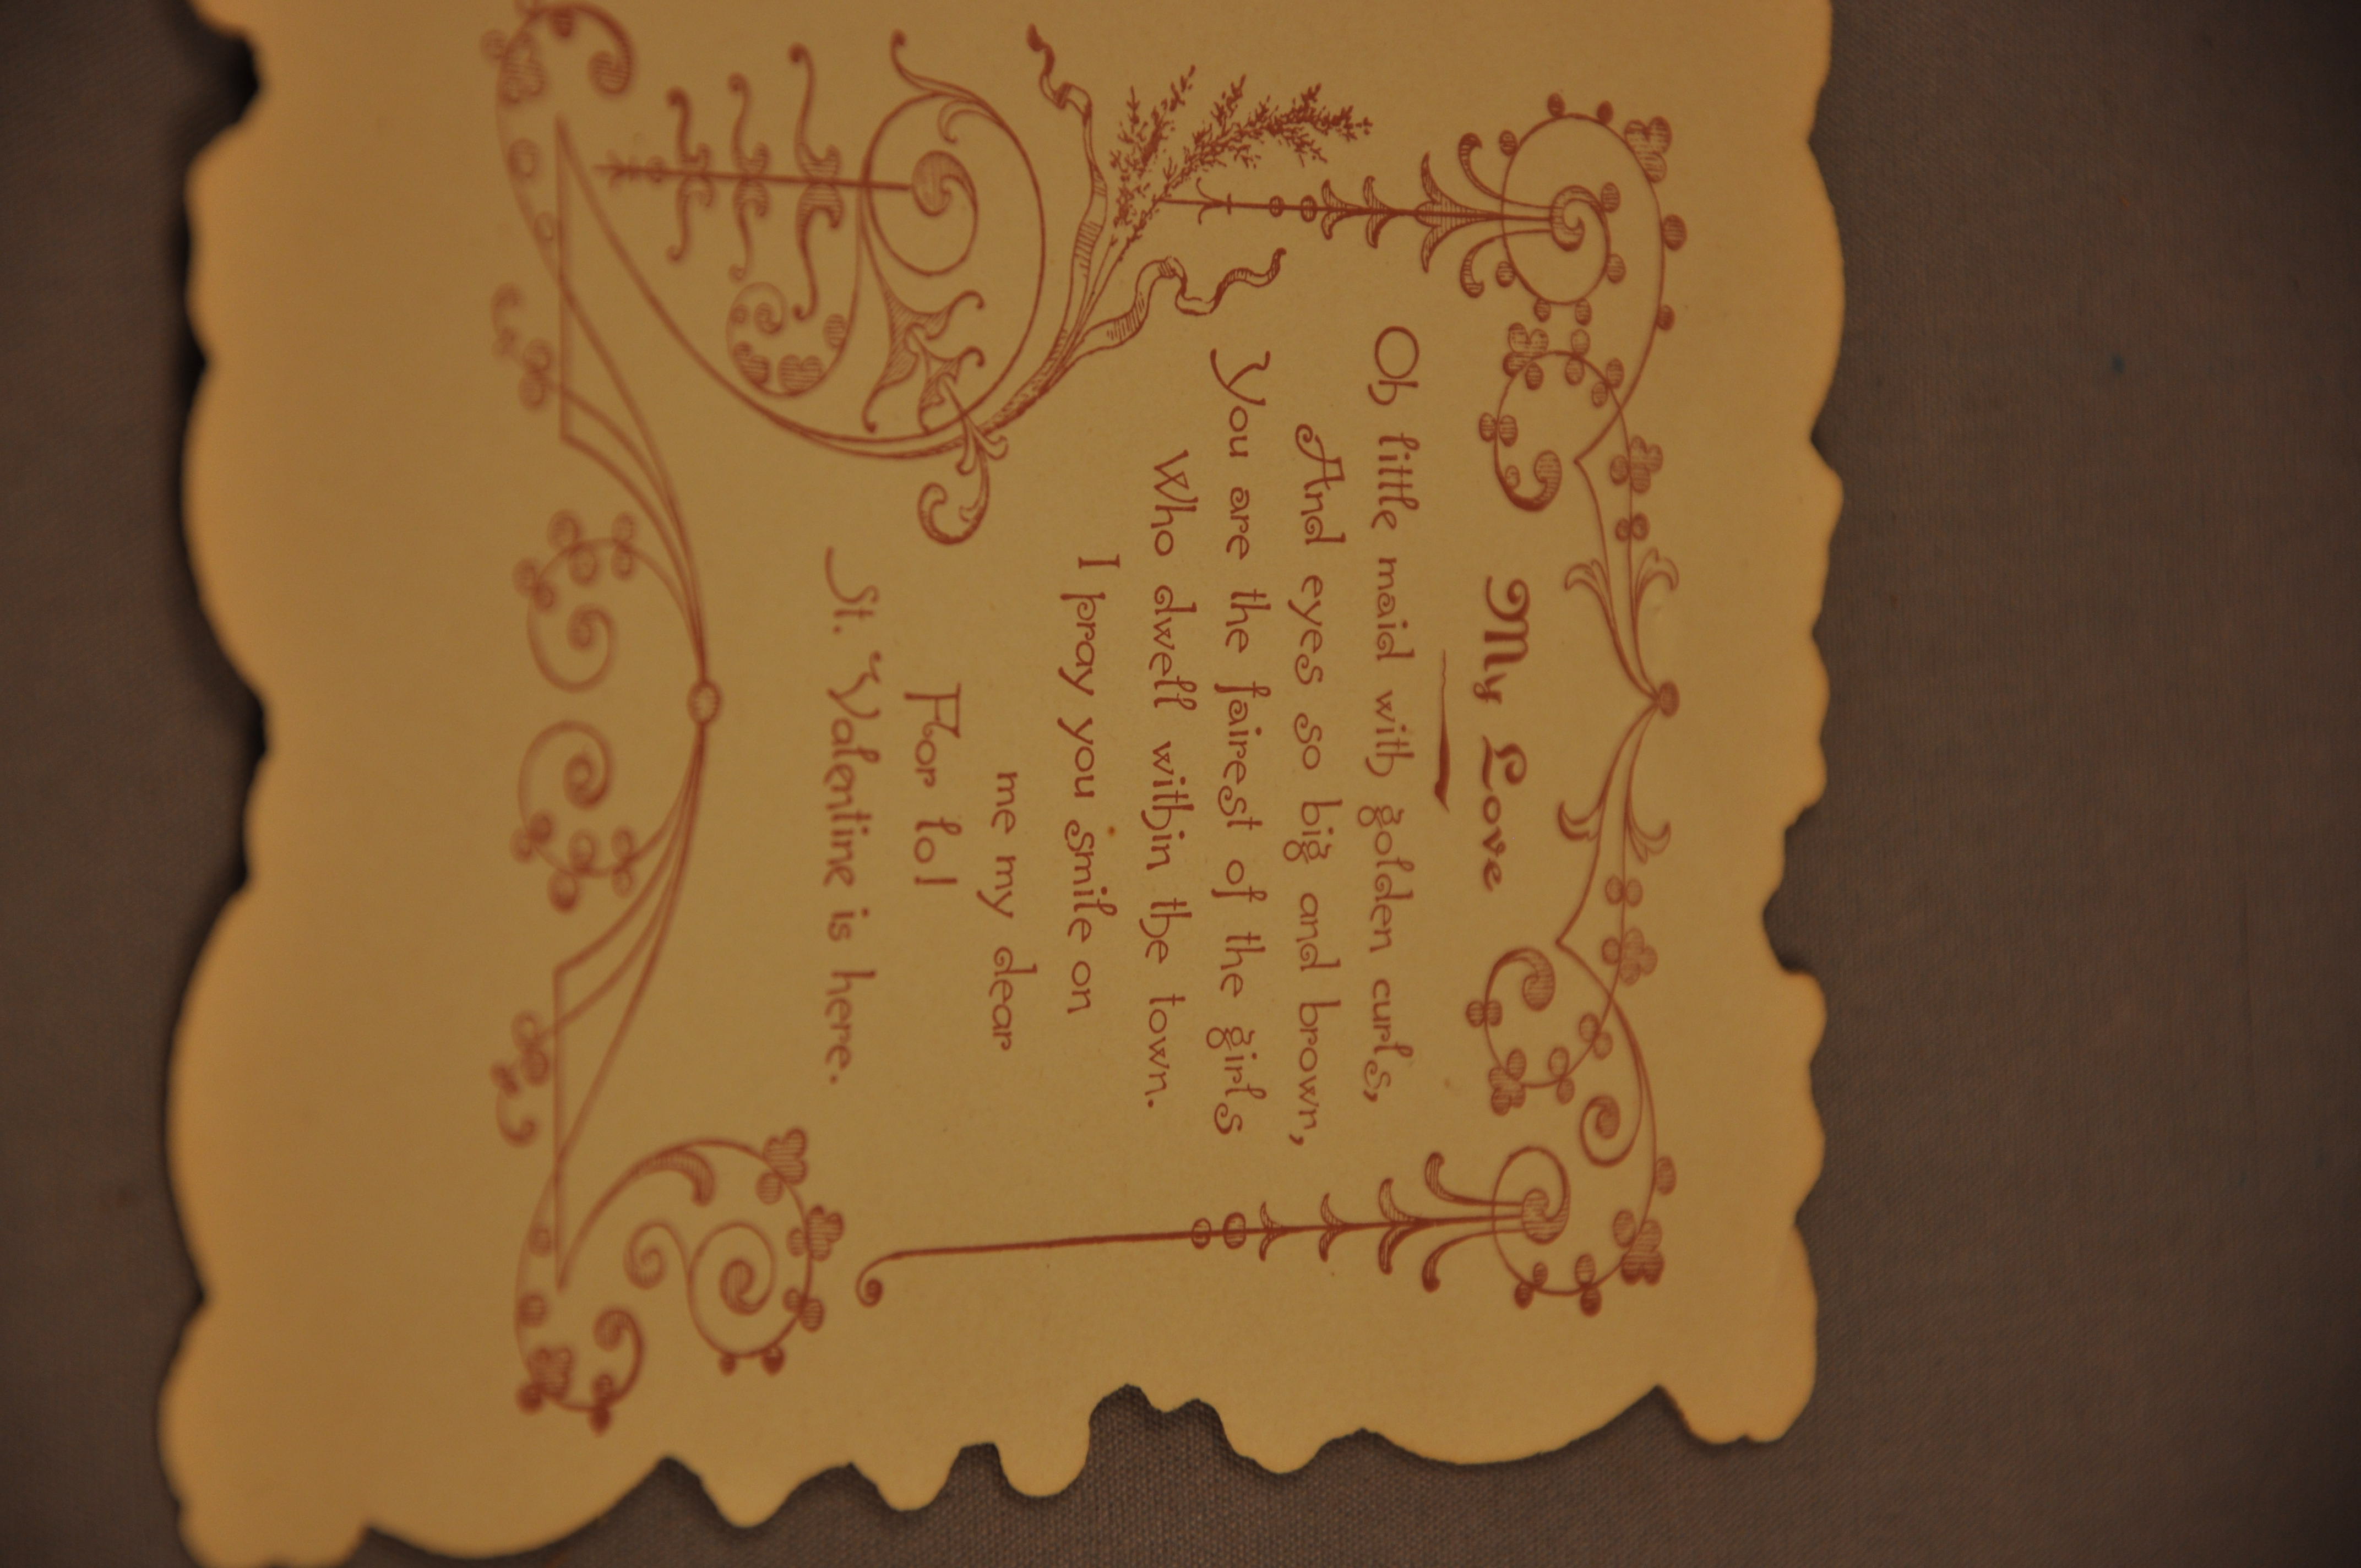 My Love
Oh little maid with golden curls,
And eyes so big and brown,
You are the fairest of the girls
Who dwell within the town.
I pray you smile on
me my dear
For lo!
St. Valentine is here.